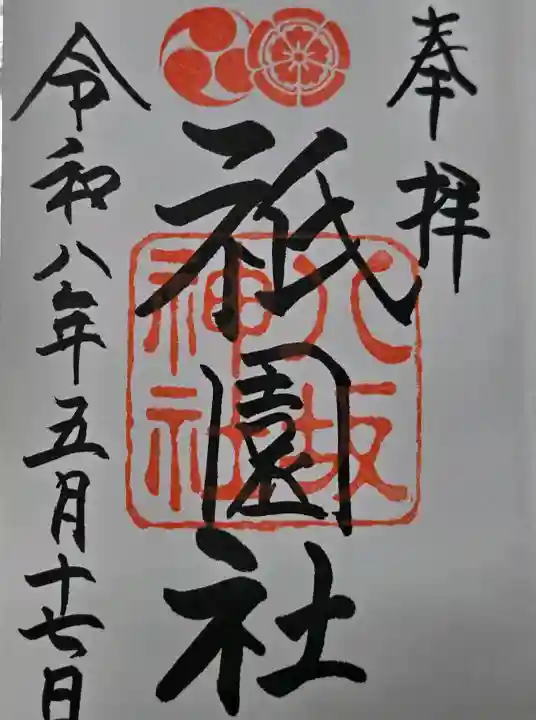 奉拝
八坂
神社
祇園社
令和八年五月十七日